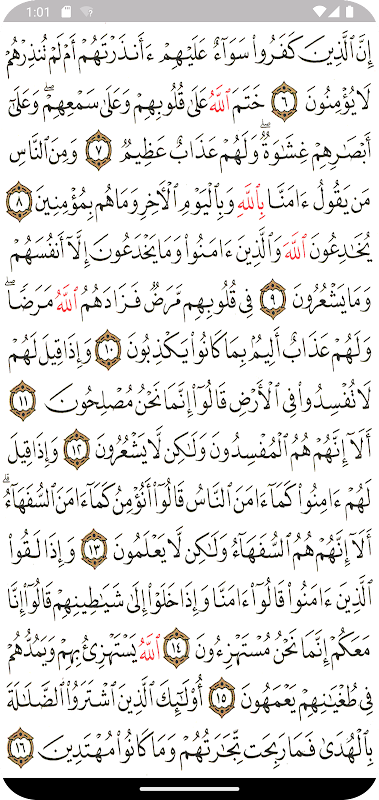 1:01
إِنَّ ٱلَّذِينَ كَفَرُوا۟ سَوَآءٌ عَلَيْهِمْ ءَأَنذَرْتَهُمْ أَمْ لَمْ تُنذِرْهُمْ
لَا يُؤْمِنُونَ ٦ خَتَمَ ٱللَّهُ عَلَىٰ قُلُوبِهِمْ وَعَلَىٰ سَمْعِهِمْ ۖ وَعَلَىٰٓ
أَبْصَـٰرِهِمْ غِشَـٰوَةٌ ۖ وَلَهُمْ عَذَابٌ عَظِيمٌ ٧ وَمِنَ ٱلنَّاسِ
مَن يَقُولُ ءَامَنَّا بِٱللَّهِ وَبِٱلْيَوْمِ ٱلْـَٔاخِرِ وَمَا هُم بِمُؤْمِنِينَ ٨
يُخَـٰدِعُونَ ٱللَّهَ وَٱلَّذِينَ ءَامَنُوا۟ وَمَا يَخْدَعُونَ إِلَّآ أَنفُسَهُمْ
وَمَا يَشْعُرُونَ ٩ فِى قُلُوبِهِم مَّرَضٌ فَزَادَهُمُ ٱللَّهُ مَرَضًا ۖ
وَلَهُمْ عَذَابٌ أَلِيمٌۢ بِمَا كَانُوا۟ يَكْذِبُونَ ١٠ وَإِذَا قِيلَ لَهُمْ
لَا تُفْسِدُوا۟ فِى ٱلْأَرْضِ قَالُوٓا۟ إِنَّمَا نَحْنُ مُصْلِحُونَ ١١
أَلَآ إِنَّهُمْ هُمُ ٱلْمُفْسِدُونَ وَلَـٰكِن لَّا يَشْعُرُونَ ١٢ وَإِذَا قِيلَ
لَهُمْ ءَامِنُوا۟ كَمَآ ءَامَنَ ٱلنَّاسُ قَالُوٓا۟ أَنُؤْمِنُ كَمَآ ءَامَنَ ٱلسُّفَهَآءُ ۗ
أَلَآ إِنَّهُمْ هُمُ ٱلسُّفَهَآءُ وَلَـٰكِن لَّا يَعْلَمُونَ ١٣ وَإِذَا لَقُوا۟
ٱلَّذِينَ ءَامَنُوا۟ قَالُوٓا۟ ءَامَنَّا وَإِذَا خَلَوْا۟ إِلَىٰ شَيَـٰطِينِهِمْ قَالُوٓا۟ إِنَّا
مَعَكُمْ إِنَّمَا نَحْنُ مُسْتَهْزِءُونَ ١٤ ٱللَّهُ يَسْتَهْزِئُ بِهِمْ وَيَمُدُّهُمْ
فِى طُغْيَـٰنِهِمْ يَعْمَهُونَ ١٥ أُو۟لَـٰٓئِكَ ٱلَّذِينَ ٱشْتَرَوُا۟ ٱلضَّلَـٰلَةَ
بِٱلْهُدَىٰ فَمَا رَبِحَت تِّجَـٰرَتُهُمْ وَمَا كَانُوا۟ مُهْتَدِينَ ١٦